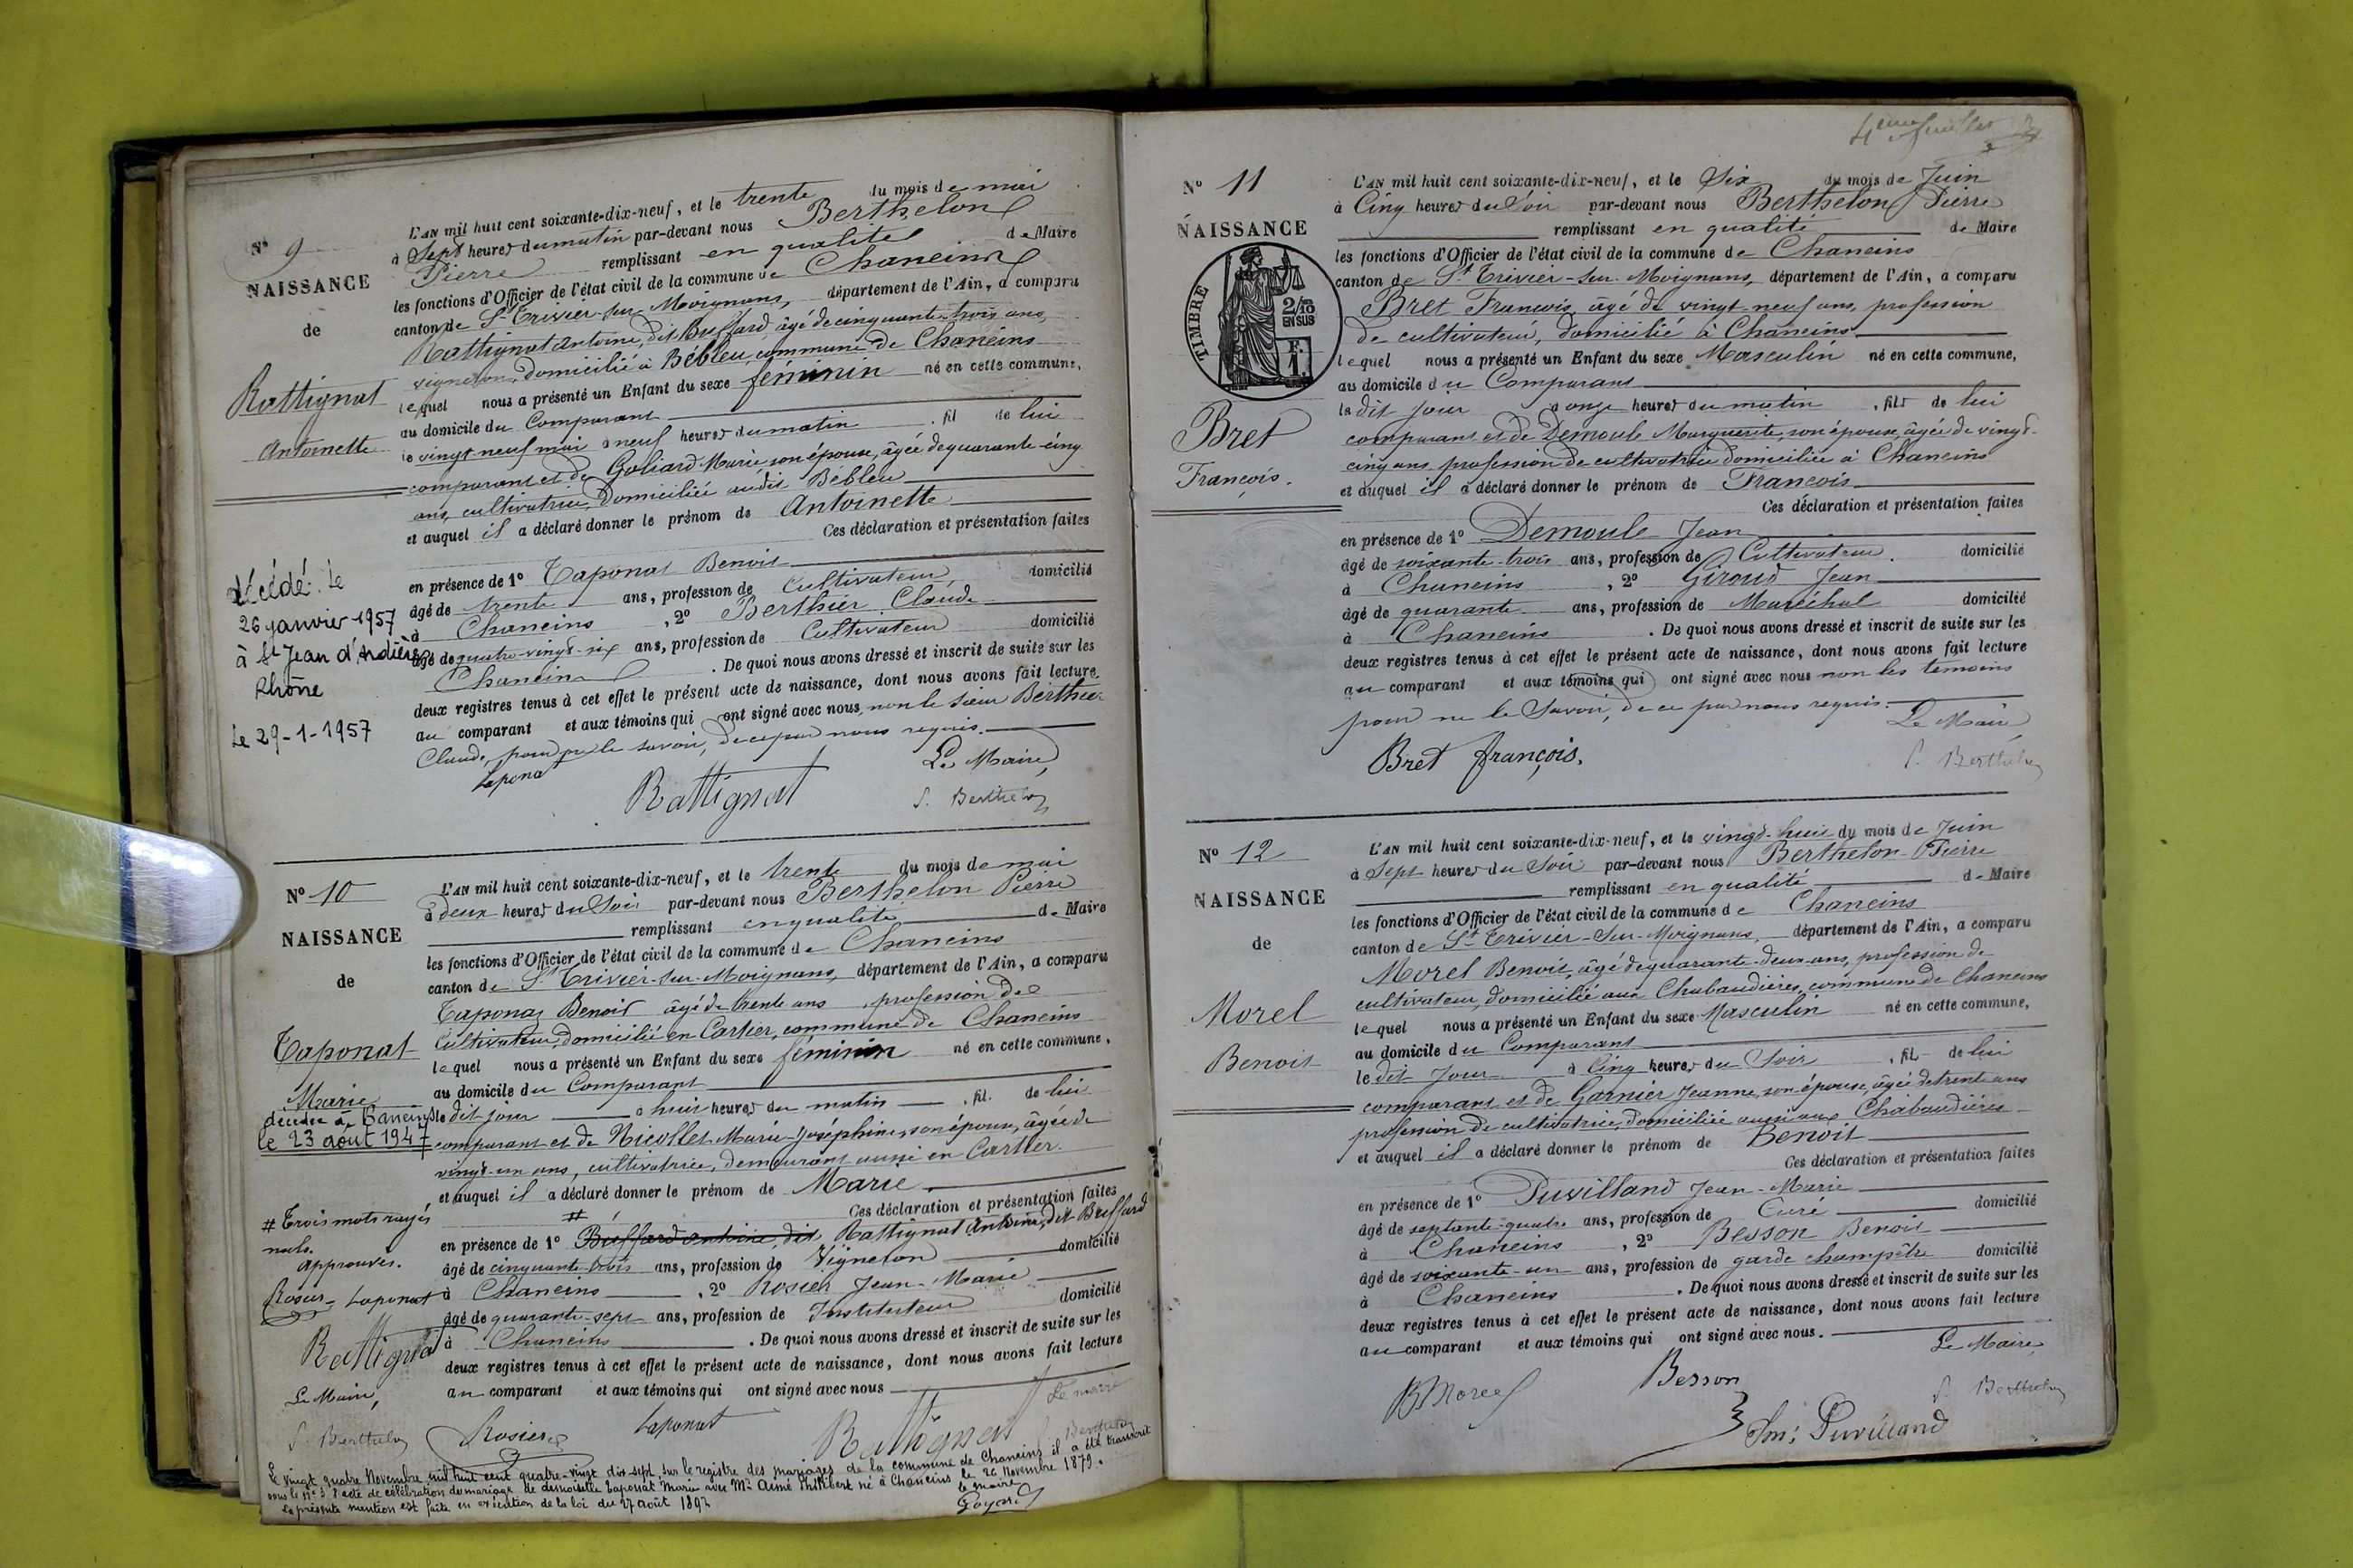 N° 9
NAISSANCE
de
Rattignat
Antoinette
décédé: le
26 janvier 1957
à St Jean d'Ardières
Rhône
le 29-1-1957
L'AN mil huit cent soixante-dix-neuf, et le trente du mois de mai
à Sept heures du matin par-devant nous Berthelon
Pierre remplissant en qualité de Maire
les fonctions d'Officier de l'état civil de la commune de Chaneins
canton de St Trivier-sur-Moignans, département de l'Ain, a comparu
Rattignat Antoine, dit Buffard, âgé de cinquante-trois ans,
vigneron, domicilié à Bébleu, commune de Chaneins
lequel nous a présenté un Enfant du sexe féminin né en cette commune,
au domicile du Comparant
le vingt neuf mai à neuf heures du matin, fil de lui
comparant et de Goliard Marie son épouse, âgée de quarante-cinq
ans, cultivatrice, domiciliée audit Bébleu
et auquel il a déclaré donner le prénom de Antoinette
Ces déclaration et présentation faites
en présence de 1° Taponat Benoit
âgé de trente ans, profession de Cultivateur, domicilié
à Chaneins, 2° Berthier Claude
âgé de quatre-vingt-six ans, profession de Cultivateur domicilié
Chaneins. De quoi nous avons dressé et inscrit de suite sur les
deux registres tenus à cet effet le présent acte de naissance, dont nous avons fait lecture
au comparant et aux témoins qui ont signé avec nous, non le sieur Berthier
Claude, pour ne le savoir, de ce par nous requis.
Taponat
Rattignat
Le Maire,
P. Berthelon
N° 10
NAISSANCE
de
Taponat
Marie
décédée à Chaneins
le 23 août 1947
# Trois mots rayés
nuls.
Approuvés.
Rosier - Taponat
Rattignat
Le Maire,
P. Berthelon
L'AN mil huit cent soixante-dix-neuf, et le trente du mois de mai
à deux heures du Soir par-devant nous Berthelon Pierre
remplissant en qualité de Maire
les fonctions d'Officier de l'état civil de la commune de Chaneins
canton de St Trivier-sur-Moignans, département de l'Ain, a comparu
Taponat Benoit âgé de trente ans, profession de
Cultivateur, domicilié en Cartier, commune de Chaneins
lequel nous a présenté un Enfant du sexe féminin né en cette commune,
au domicile du Comparant
le dit jour à huit heures du matin, fil. de lui
comparant et de Nicollet Marie-Joséphine, son épouse, âgée de
vingt-un ans, cultivatrice, demeurant aussi en Cartier.
et auquel il a déclaré donner le prénom de Marie.
Ces déclaration et présentation faites
#
en présence de 1° Buffard Antoine, dit Rattignat Antoine, dit Buffard
âgé de cinquante trois ans, profession de Vigneron domicilié
à Chaneins, 2° Rosier Jean-Marie
âgé de quarante-sept ans, profession de Instituteur domicilié
à Chaneins. De quoi nous avons dressé et inscrit de suite sur les
deux registres tenus à cet effet le présent acte de naissance, dont nous avons fait lecture
au comparant et aux témoins qui ont signé avec nous
Rosier
Taponat
Rattignat
Le maire
Berthelon
Le vingt quatre Novembre mil huit cent quatre-vingt dix-sept, sur le registre des mariages de la commune de Chaneins il a été transcrit
sous le n° 3 l'acte de célébration du mariage de demoiselle Taponat Marie avec Mr Aimé Philibert né à Chaneins le 26 Novembre 1879.
La présente mention est faite en exécution de la loi du 17 août 1897
Le maire
Goyard
4eme feuillet
N° 11
NAISSANCE
TIMBRE
2/10
EN SUS
F.
1.
Bret
François.
L'AN mil huit cent soixante-dix-neuf, et le Six du mois de Juin
à Cinq heures du Soir par-devant nous Berthelon Pierre
remplissant en qualité de Maire
les fonctions d'Officier de l'état civil de la commune de Chaneins
canton de St Trivier-sur-Moignans, département de l'Ain, a comparu
Bret François, âgé de vingt-neuf ans, profession
de cultivateur, domicilié à Chaneins
lequel nous a présenté un Enfant du sexe Masculin né en cette commune,
au domicile du Comparant
le dit jour à onze heures du matin, fils de lui
comparant et de Demoule Marguerite, son épouse, âgée de vingt-
cinq ans profession de cultivatrice domiciliée à Chaneins
et auquel il a déclaré donner le prénom de François
Ces déclaration et présentation faites
en présence de 1° Demoule Jean
âgé de soixante-trois ans, profession de Cultivateur. domicilié
à Chaneins, 2° Giroud Jean
âgé de quarante ans, profession de Maréchal domicilié
à Chaneins. De quoi nous avons dressé et inscrit de suite sur les
deux registres tenus à cet effet le présent acte de naissance, dont nous avons fait lecture
au comparant et aux témoins qui ont signé avec nous non les témoins
pour ne le Savoir, de ce par nous requis.
Le Maire
Bret françois.
P. Berthelon
N° 12
NAISSANCE
de
Morel
Benoit
L'AN mil huit cent soixante-dix-neuf, et le vingt-huit du mois de Juin
à Sept heures du Soir par-devant nous Berthelon Pierre
remplissant en qualité de Maire
les fonctions d'Officier de l'état civil de la commune de Chaneins
canton de St Trivier-sur-Moignans, département de l'Ain, a comparu
Morel Benoit, âgé de quarante-deux ans, profession de
cultivateur, domicilié aux Chabaudières, commune de Chaneins
lequel nous a présenté un Enfant du sexe Masculin né en cette commune,
au domicile du Comparant
le dit Jour à Cinq heures du Soir, fil de lui
comparant et de Garnier Jeanne, son épouse, âgée de trente ans
profession de cultivatrice, domiciliée aussi aux Chabaudières
et auquel il a déclaré donner le prénom de Benoit
Ces déclaration et présentation faites
en présence de 1° Puvilland Jean-Marie
âgé de septante-quatre ans, profession de Curé domicilié
à Chaneins, 2° Besson Benoit
âgé de soixante-un ans, profession de garde champêtre domicilié
à Chaneins. De quoi nous avons dressé et inscrit de suite sur les
deux registres tenus à cet effet le présent acte de naissance, dont nous avons fait lecture
au comparant et aux témoins qui ont signé avec nous.
Le Maire
B Morel
Besson
P. Berthelon
Puvilland